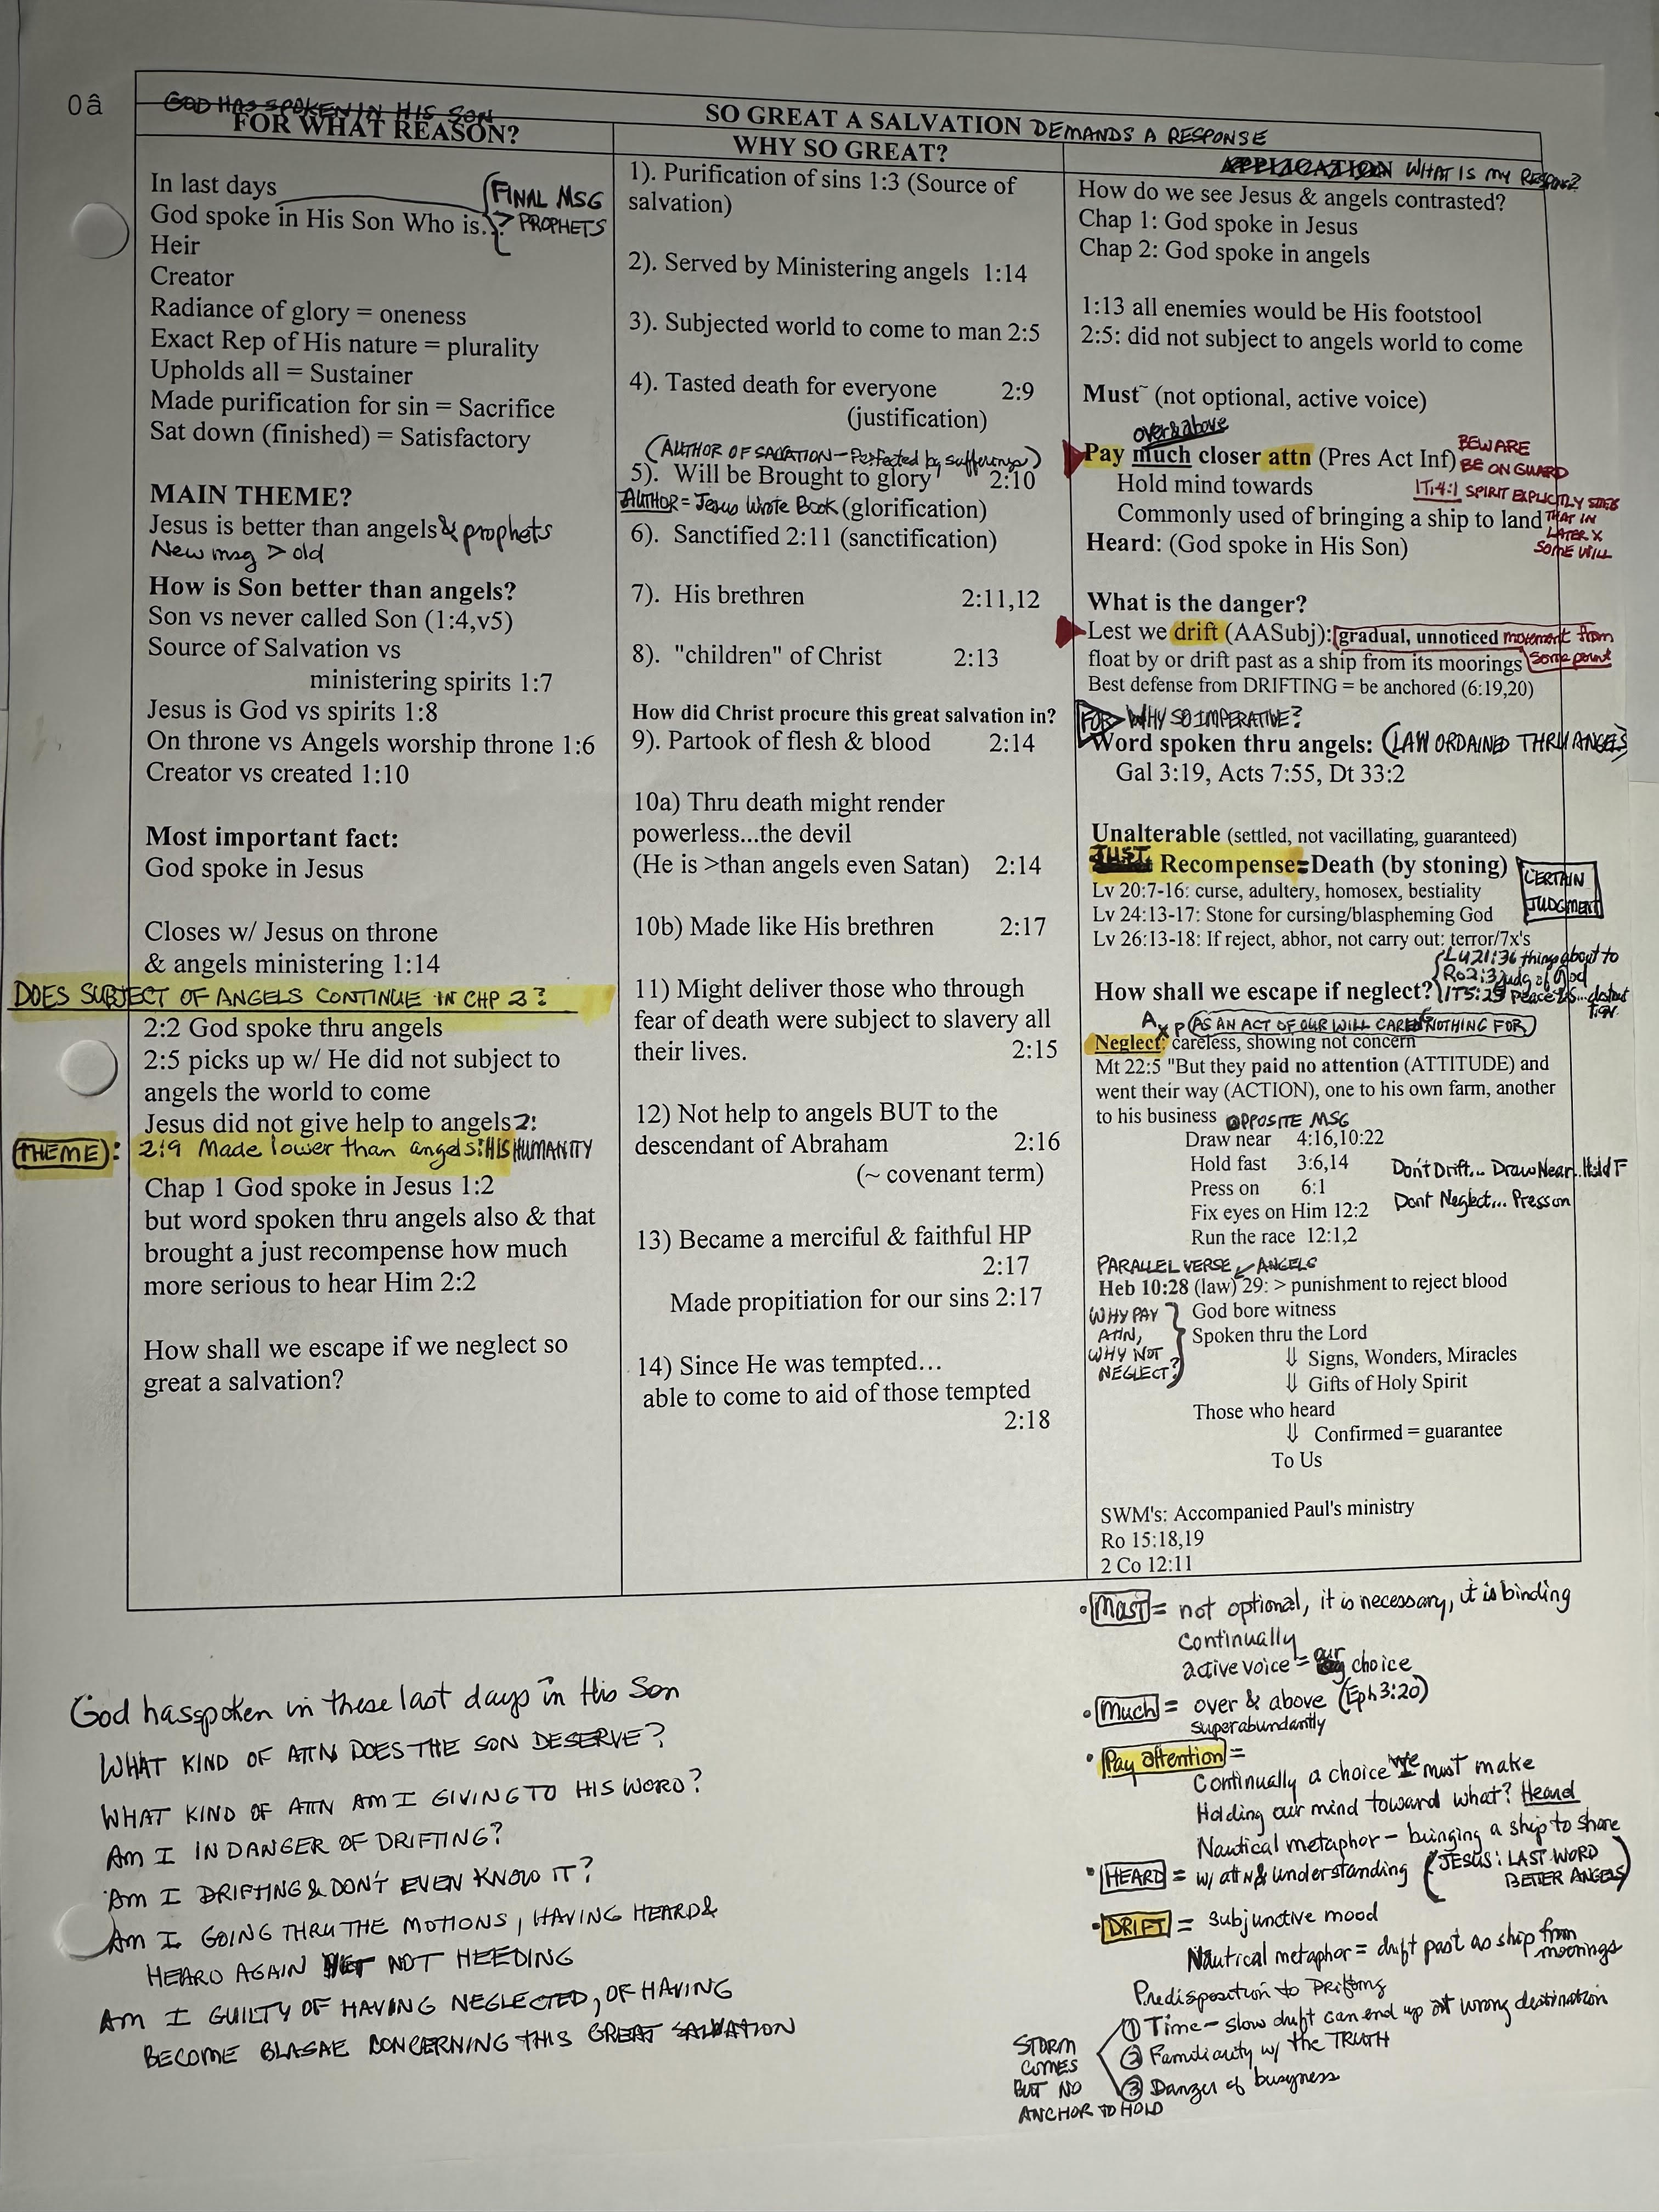 0â
GOD HAS SPOKEN IN HIS SON
SO GREAT A SALVATION DEMANDS A RESPONSE
FOR WHAT REASON?
In last days
(FINAL MSG
God spoke in His Son Who is..
> PROPHETS
Heir
Creator
Radiance of glory = oneness
Exact Rep of His nature = plurality
Upholds all = Sustainer
Made purification for sin = Sacrifice
Sat down (finished) = Satisfactory
MAIN THEME?
Jesus is better than angels & prophets
New msg > old
How is Son better than angels?
Son vs never called Son (1:4,v5)
Source of Salvation vs
ministering spirits 1:7
Jesus is God vs spirits 1:8
On throne vs Angels worship throne 1:6
Creator vs created 1:10
Most important fact:
God spoke in Jesus
Closes w/ Jesus on throne
& angels ministering 1:14
DOES SUBJECT OF ANGELS CONTINUE IN CHP 2?
2:2 God spoke thru angels
2:5 picks up w/ He did not subject to
angels the world to come
Jesus did not give help to angels 2:
THEME: 2:9 Made lower than angels: HIS HUMANITY
Chap 1 God spoke in Jesus 1:2
but word spoken thru angels also & that
brought a just recompense how much
more serious to hear Him 2:2
How shall we escape if we neglect so
great a salvation?
WHY SO GREAT?
1). Purification of sins 1:3 (Source of
salvation)
2). Served by Ministering angels 1:14
3). Subjected world to come to man 2:5
4). Tasted death for everyone 2:9
(justification)
(AUTHOR OF SALVATION - Perfected by sufferings)
5). Will be Brought to glory 2:10
AUTHOR = Jesus Wrote Book (glorification)
6). Sanctified 2:11 (sanctification)
7). His brethren 2:11,12
8). "children" of Christ 2:13
How did Christ procure this great salvation in?
9). Partook of flesh & blood 2:14
10a) Thru death might render
powerless...the devil
(He is >than angels even Satan) 2:14
10b) Made like His brethren 2:17
11) Might deliver those who through
fear of death were subject to slavery all
their lives. 2:15
12) Not help to angels BUT to the
descendant of Abraham 2:16
(~ covenant term)
13) Became a merciful & faithful HP
2:17
Made propitiation for our sins 2:17
14) Since He was tempted…
able to come to aid of those tempted
2:18
APPLICATION WHAT IS MY RESPONSE?
How do we see Jesus & angels contrasted?
Chap 1: God spoke in Jesus
Chap 2: God spoke in angels
1:13 all enemies would be His footstool
2:5: did not subject to angels world to come
Must~ (not optional, active voice)
over & above
Pay much closer attn (Pres Act Inf)
BEWARE
BE ON GUARD
Hold mind towards
1T:4:1 SPIRIT EXPLICITLY
Commonly used of bringing a ship to land
THAT IN
LATER X
SOME WILL
Heard: (God spoke in His Son)
What is the danger?
Lest we drift (AASubj): gradual, unnoticed movement from
some point
float by or drift past as a ship from its moorings
Best defense from DRIFTING = be anchored (6:19,20)
FOR WHY SO IMPERATIVE?
Word spoken thru angels: (LAW ORDAINED THRU ANGELS)
Gal 3:19, Acts 7:55, Dt 33:2
Unalterable (settled, not vacillating, guaranteed)
JUST Recompense=Death (by stoning)
CERTAIN
JUDGMENT
Lv 20:7-16: curse, adultery, homosex, bestiality
Lv 24:13-17: Stone for cursing/blaspheming God
Lv 26:13-18: If reject, abhor, not carry out: terror/7x's
Lu 21:36 things about to
Ro 2:3 judg of God
How shall we escape if neglect?
AxP (AS AN ACT OF OUR WILL CARED NOTHING FOR)
Neglect: careless, showing not concern
Mt 22:5 "But they paid no attention (ATTITUDE) and
went their way (ACTION), one to his own farm, another
to his business OPPOSITE MSG
Draw near 4:16,10:22
Hold fast 3:6,14
Don't Drift... Draw Near..Hold F
Press on 6:1
Fix eyes on Him 12:2
Dont Neglect... Press on
Run the race 12:1,2
PARALLEL VERSE ANGELS
Heb 10:28 (law) 29: > punishment to reject blood
WHY PAY
ATTN,
WHY NOT
NEGLECT?
God bore witness
Spoken thru the Lord
⇓ Signs, Wonders, Miracles
⇓ Gifts of Holy Spirit
Those who heard
⇓ Confirmed = guarantee
To Us
SWM's: Accompanied Paul's ministry
Ro 15:18,19
2 Co 12:11
God has spoken in these last days in His Son
WHAT KIND OF ATTN DOES THE SON DESERVE?
WHAT KIND OF ATTN AM I GIVING TO HIS WORD?
Am I IN DANGER OF DRIFTING?
Am I DRIFTING & DON'T EVEN KNOW IT?
Am I GOING THRU THE MOTIONS, HAVING HEARD &
HEARD AGAIN YET NOT HEEDING
AM I GUILTY OF HAVING NEGLECTED, OF HAVING
BECOME BLASAE CONCERNING THIS GREAT SALVATION
• Must = not optional, it is necessary, it is binding
continually
active voice = our choice
• Much = over & above (Eph 3:20)
superabundantly
• Pay attention =
Continually a choice we must make
Holding our mind toward what? Heard
Nautical metaphor - bringing a ship to shore
• HEARD = w/ attN & understanding
(JESUS: LAST WORD
BETTER ANGELS)
• DRIFT = subjunctive mood
Nautical metaphor = drift past as ship from
moorings
Predisposition to Drifting
① Time - slow drift can end up at wrong destination
② Familiarity w/ the TRUTH
③ Danger of busyness
STORM
COMES
BUT NO
ANCHOR TO HOLD